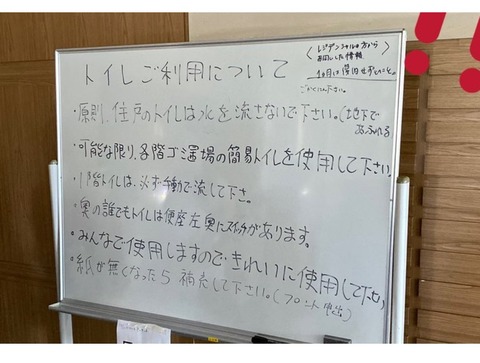 トイレご利用について
レジデンシャルの方から
お聞きした情報
1日目は復旧せずとのこと。
ごかくにん下さい。
・原則、住戸のトイレは水を流さないで下さい。(地下で
あふれる
・可能な限り、各階ゴミ置場の簡易トイレを使用して下さい。
・1階トイレは、必ず手動で流して下さい。
・奥の誰でもトイレは便座左奥にスイッチがあります。
・みんなで使用しますので、きれいに使用して下さい
・紙が無くなったら補充して下さい。(フロント申出)